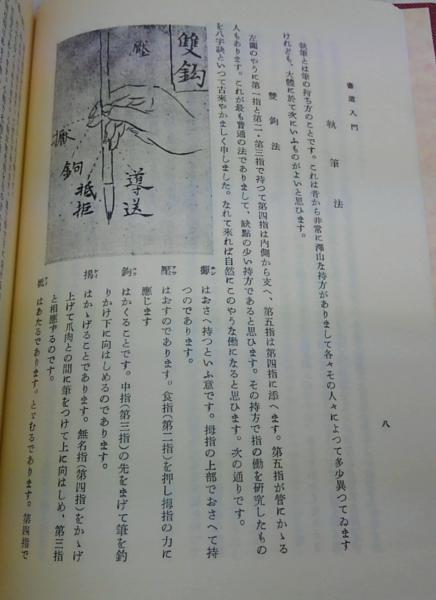 書道入門
八
執筆法
執筆とは筆の持ち方のことです。これは昔から非常に澤山な持方がありまして各々その人々によつて多少異つてゐます
けれども、大體に於て次にいふものがよいと思ひます。
雙鈎法
左圖のやうに第一指と第二・第三指で持つて第四指は内側から支へ、第五指は第四指に添へます。第五指が管にかゝる
人もあります。これが最も普通の法でありまして、缺點の少い持方であると思ひます。その持方で指の働を研究したもの
を八字訣といつて古來やかましく申しました。なれて來れば自然にこのやうな働になると思ひます。次の通りです。
雙鈎
壓
導送
鈎
抵拒
擫 はおさへ持つといふ意です。拇指の上部でおさへて持
つのであります。
壓 はおすのであります。食指(第二指)を押し拇指の力に
應じます
鈎 はかくることです。中指(第三指)の先をまげて筆を釣
りかけ下に向はしめるのであります。
掲 はかゝげることであります。無名指(第四指)をかゝげ
上げて爪肉との間に筆をつけて上に向はしめ、第三指
と相應ずるのです。
抵 はあたるであります。とてむるであります。第四指で